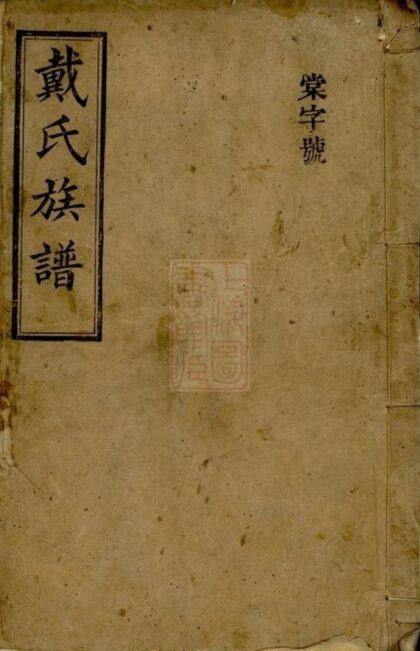 棠字號
戴氏族譜